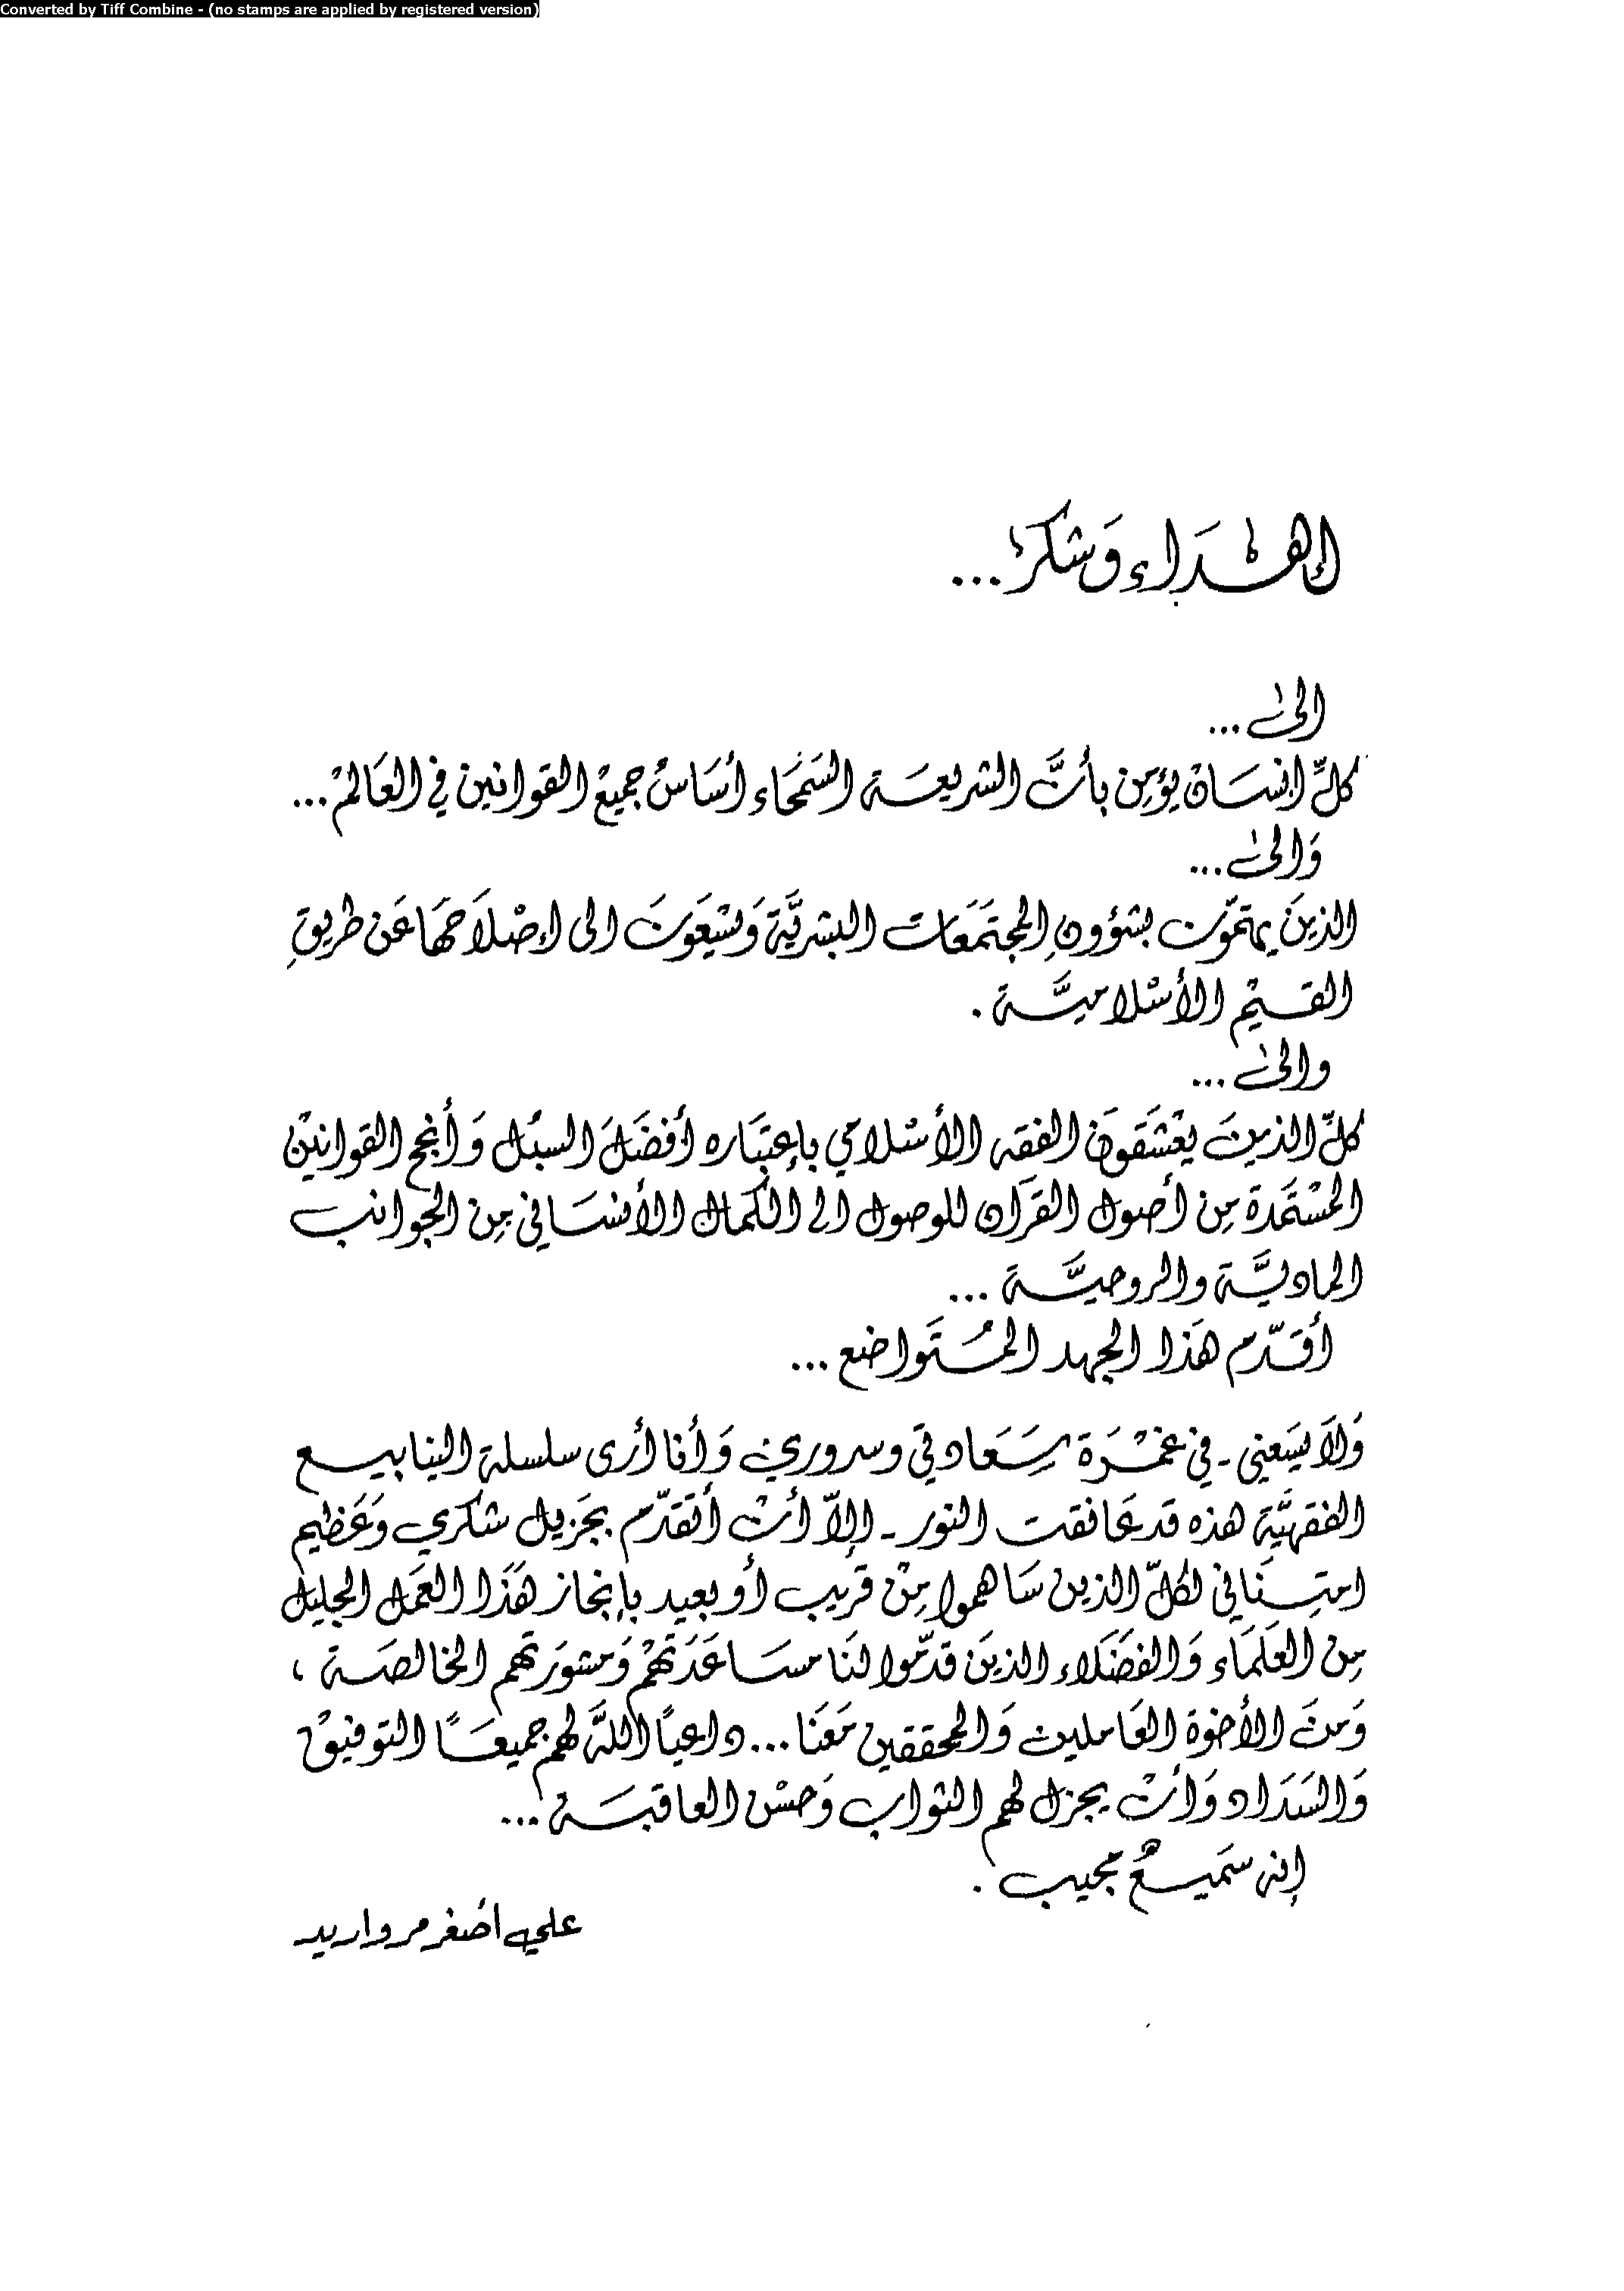 Converted by Tiff Combine - (no stamps are applied by registered version)
إهداء وشكر...
الى...
كلّ انسان يؤمن بأنّ الشريعة السمحاء أساس جميع القوانين في العالم...
والى...
الذين يهتمّون بشؤون المجتمعات البشريّة ويسعون الى إصلاحها عن طريق
القيم الأسلاميّة .
والى...
كلّ الذين يعشقون الفقه الأسلامي بإعتباره أفضل السبل وأنجح القوانين
المستمدة من أصول القرآن للوصول الى الكمال الأنساني من الجوانب
الماديّة والروحيّة ...
أقدّم هذا الجهد المتواضع ...
ولا يسعني - في غمرة سعادتي وسروري وأنا أرى سلسلة الينابيع
الفقهيّة هذه قد عانقت النور - إلاّ أن أتقدّم بجزيل شكري وعظيم
امتناني لكلّ الذين ساهموا من قريب أو بعيد بإنجاز هذا العمل الجليل
من العلماء والفضلاء الذين قدّموا لنا مساعدتهم ومشورتهم الخالصة ،
ومن الأخوة العاملين والمحققين معنا... داعياً اللّه لهم جميعاً التوفيق
والسداد وأن يجزل لهم الثواب وحسن العاقبة ...
إنه سميع مجيب .
علي أصغر مرواريد